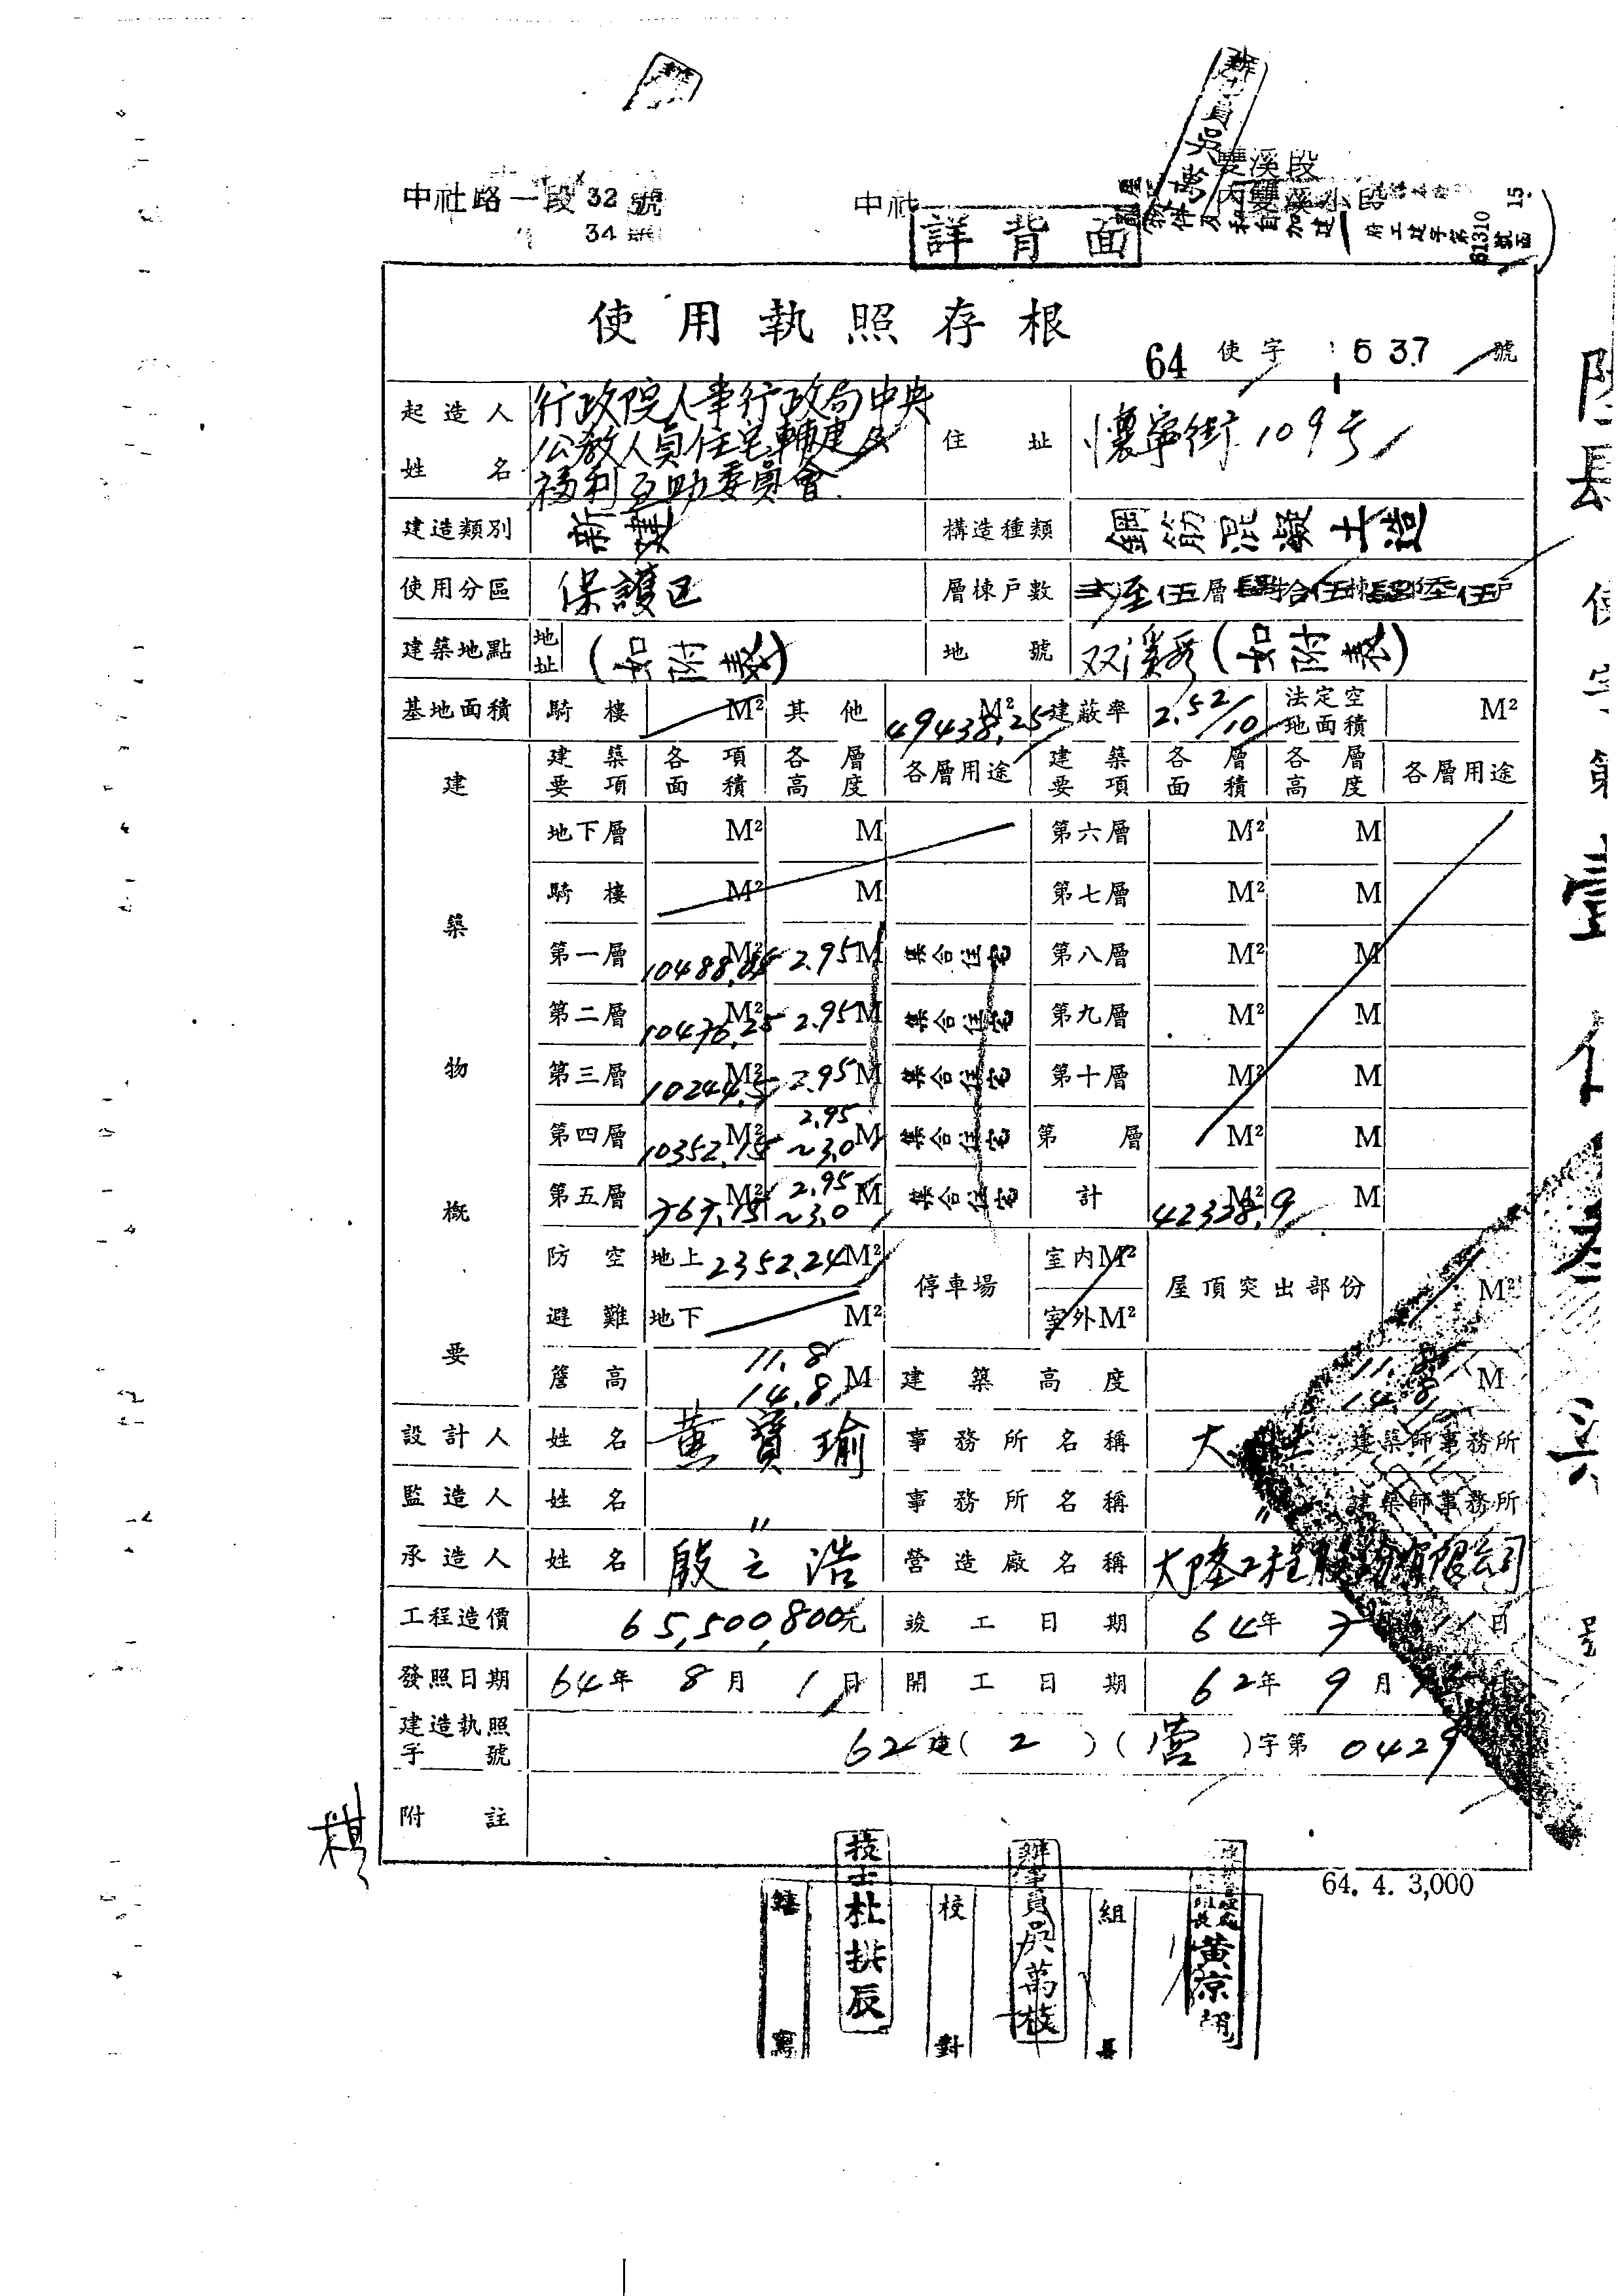 中社路一段32號
34號
中社
雙溪段
內雙溪小段
詳背面
使用執照存根
64使字 1537號
起造人姓名 行政院人事行政局中央公教人員住宅輔建及福利互助委員會 住址 懷寧街109号
建造類別 新建 構造種類 鋼筋混凝土造
使用分區 保護區 層棟戶數 至伍層 拾伍棟 伍戶
建築地點 地址 (如附表) 地號 双溪段(如附表)
基地面積 騎樓 M² 其他 49438.25 M² 建蔽率 2.52/10 法定空地面積 M²
建築物概要
建築要項 各項面積 各層高度 各層用途 建築要項 各層面積 各層高度 各層用途
地下層 M² M 第六層 M² M
騎樓 M² M 第七層 M² M
第一層 M² 2.95M 集合住宅 第八層 M² M
第二層 10476.25 M² 2.95M 集合住宅 第九層 M² M
第三層 10244.5 M² 2.95M 集合住宅 第十層 M² M
第四層 10352.15 M² 2.95~3.0 M 集合住宅 第 層 M² M
第五層 767.15 M² 2.95~3.0 M 集合住宅 計 42328.9 M² M
防空避難 地上 2352.24 M² 停車場 室內M² 屋頂突出部份 M²
地下 M² 室外M²
簷高 11.8 14.8 M 建築高度 11.8 14.8 M
設計人 姓名 黃寶瑜 事務所名稱 大 建築師事務所
監造人 姓名 〃 事務所名稱 〃 建築師事務所
承造人 姓名 殷之浩 營造廠名稱 大陸工程股份有限公司
工程造價 65,500,800元 竣工日期 64年 7 日
發照日期 64年 8月 1日 開工日期 62年 9月
建造執照字號 62建(2)(營)字第 0429
附註
64. 4. 3,000
繕寫 技士杜拱辰 校對 辦事員吳萬枝 組長